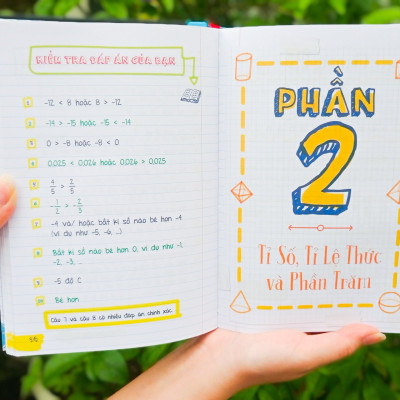 KIỂM TRA ĐÁP ÁN CỦA BẠN
1 -12 < 8 hoặc 8 > -12
2 -14 > -15 hoặc -15 < -14
3 0 > -8 hoặc -8 < 0
4 0,025 < 0,026 hoặc 0,026 > 0,025
5 4/5 > 2/5
7 -4 và/ hoặc bất kì số nào bé hơn -4
(ví dụ như -5, -6, ...)
8 Bất kì số nào bé hơn 0, ví dụ như -1,
-2, -3, ...
9 -5 độ C
10 Bé hơn
Câu 7 và câu 8 có nhiều đáp án chính xác.
PHẦN
2
Tỉ Số, Tỉ Lệ Thức
và Phần Trăm